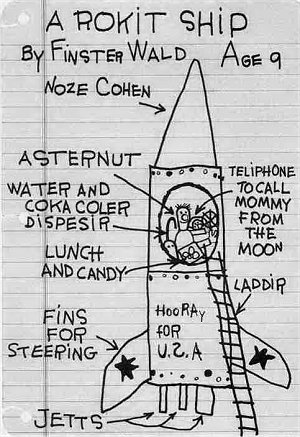 A ROKIT SHIP
BY FINSTER WALD AGE 9
NOZE COHEN
ASTERNUT
TELIPHONE
TO CALL
MOMMY
FROM
THE
MOON
WATER AND
COKA COLER
DISPESIR
LUNCH
AND CANDY
LADDIR
HOORAY
FOR
U.S.A
FINS
FOR
STEERING
JETTS